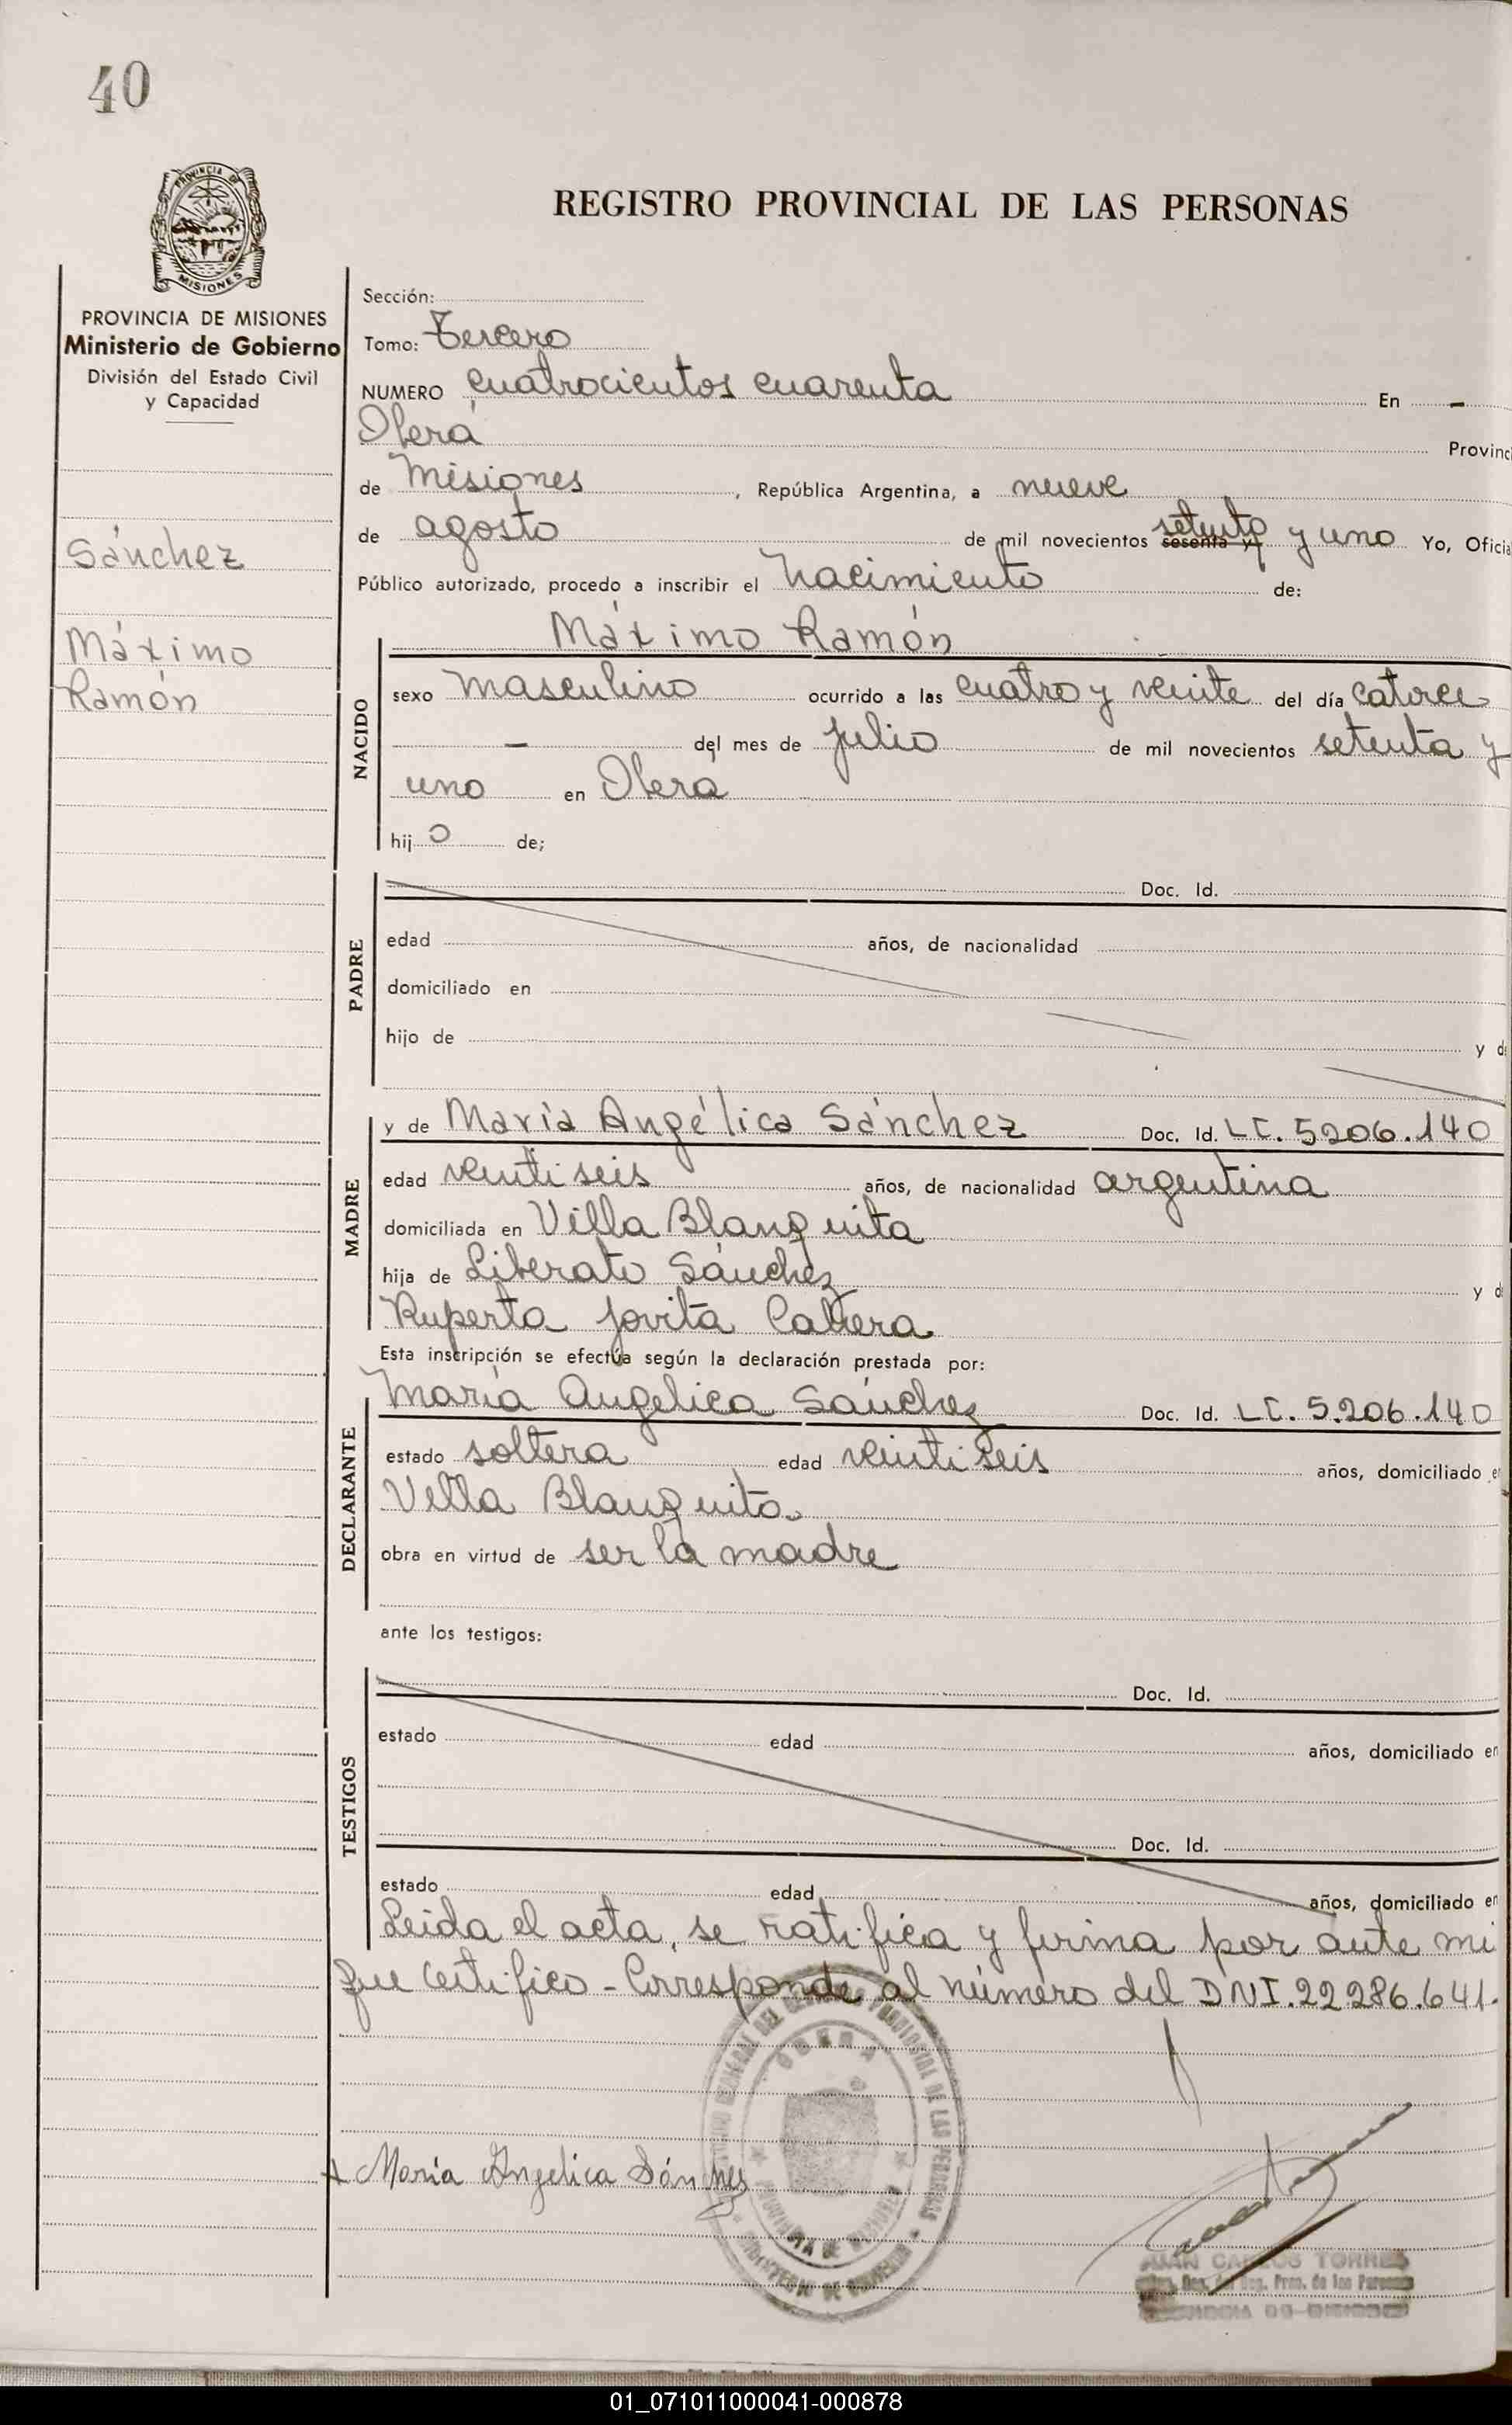 40
PROVINCIA DE
MISIONES
REGISTRO PROVINCIAL DE LAS PERSONAS
PROVINCIA DE MISIONES
Ministerio de Gobierno
División del Estado Civil
y Capacidad
Sánchez
Máximo
Ramón
Sección:
Tomo: Tercero
NUMERO cuatrocientos cuarenta En -
Oberá Provinc
de Misiones, República Argentina, a nueve
de agosto de mil novecientos sesenta y setenta y uno Yo, Oficia
Público autorizado, procedo a inscribir el Nacimiento de:
NACIDO
Máximo Ramón
sexo masculino ocurrido a las cuatro y veinte del día catorce
- del mes de julio de mil novecientos setenta y
uno en Oberá
hij o de;
PADRE
Doc. Id.
edad años, de nacionalidad
domiciliado en
hijo de y d
MADRE
y de María Angélica Sánchez Doc. Id. LC. 5206.140
edad veinti seis años, de nacionalidad argentina
domiciliada en Villa Blanquita
hija de Liberato Sánchez y d
Ruperta Jovita Cabrera
Esta inscripción se efectúa según la declaración prestada por:
DECLARANTE
María Angelica Sánchez Doc. Id. LC. 5.206.140
estado soltera edad veinti seis años, domiciliado e
Villa Blanquita
obra en virtud de ser la madre
ante los testigos:
TESTIGOS
Doc. Id.
estado edad años, domiciliado en
Doc. Id.
estado edad años, domiciliado en
Leida el acta, se ratifica y firma por ante mi
que certifico - Corresponde al número del DNI. 22286.641.
OBERA
María Angelica Sánchez
JUAN CARLOS TORRES
01_071011000041-000878